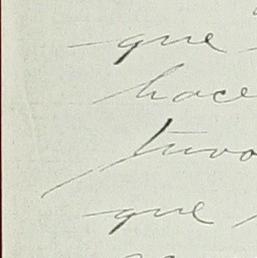 que
hace
tuvo
que